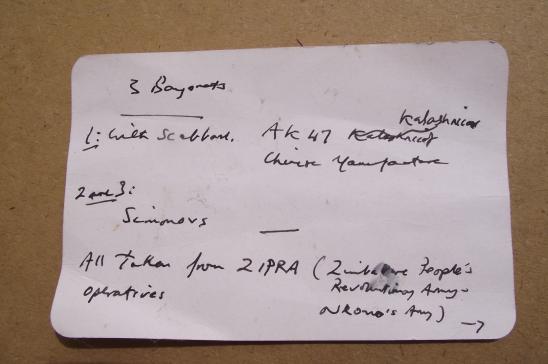 3 Bayonets
Kalashnicov
1: with Scabbard. AK 47 Kalashnicof
Chinese Manufacture
2 and 3:
Simonovs
All Taken from ZIPRA (Zimbabwe People's
operatives Revolutionary Army -
NKomo's Army)
→